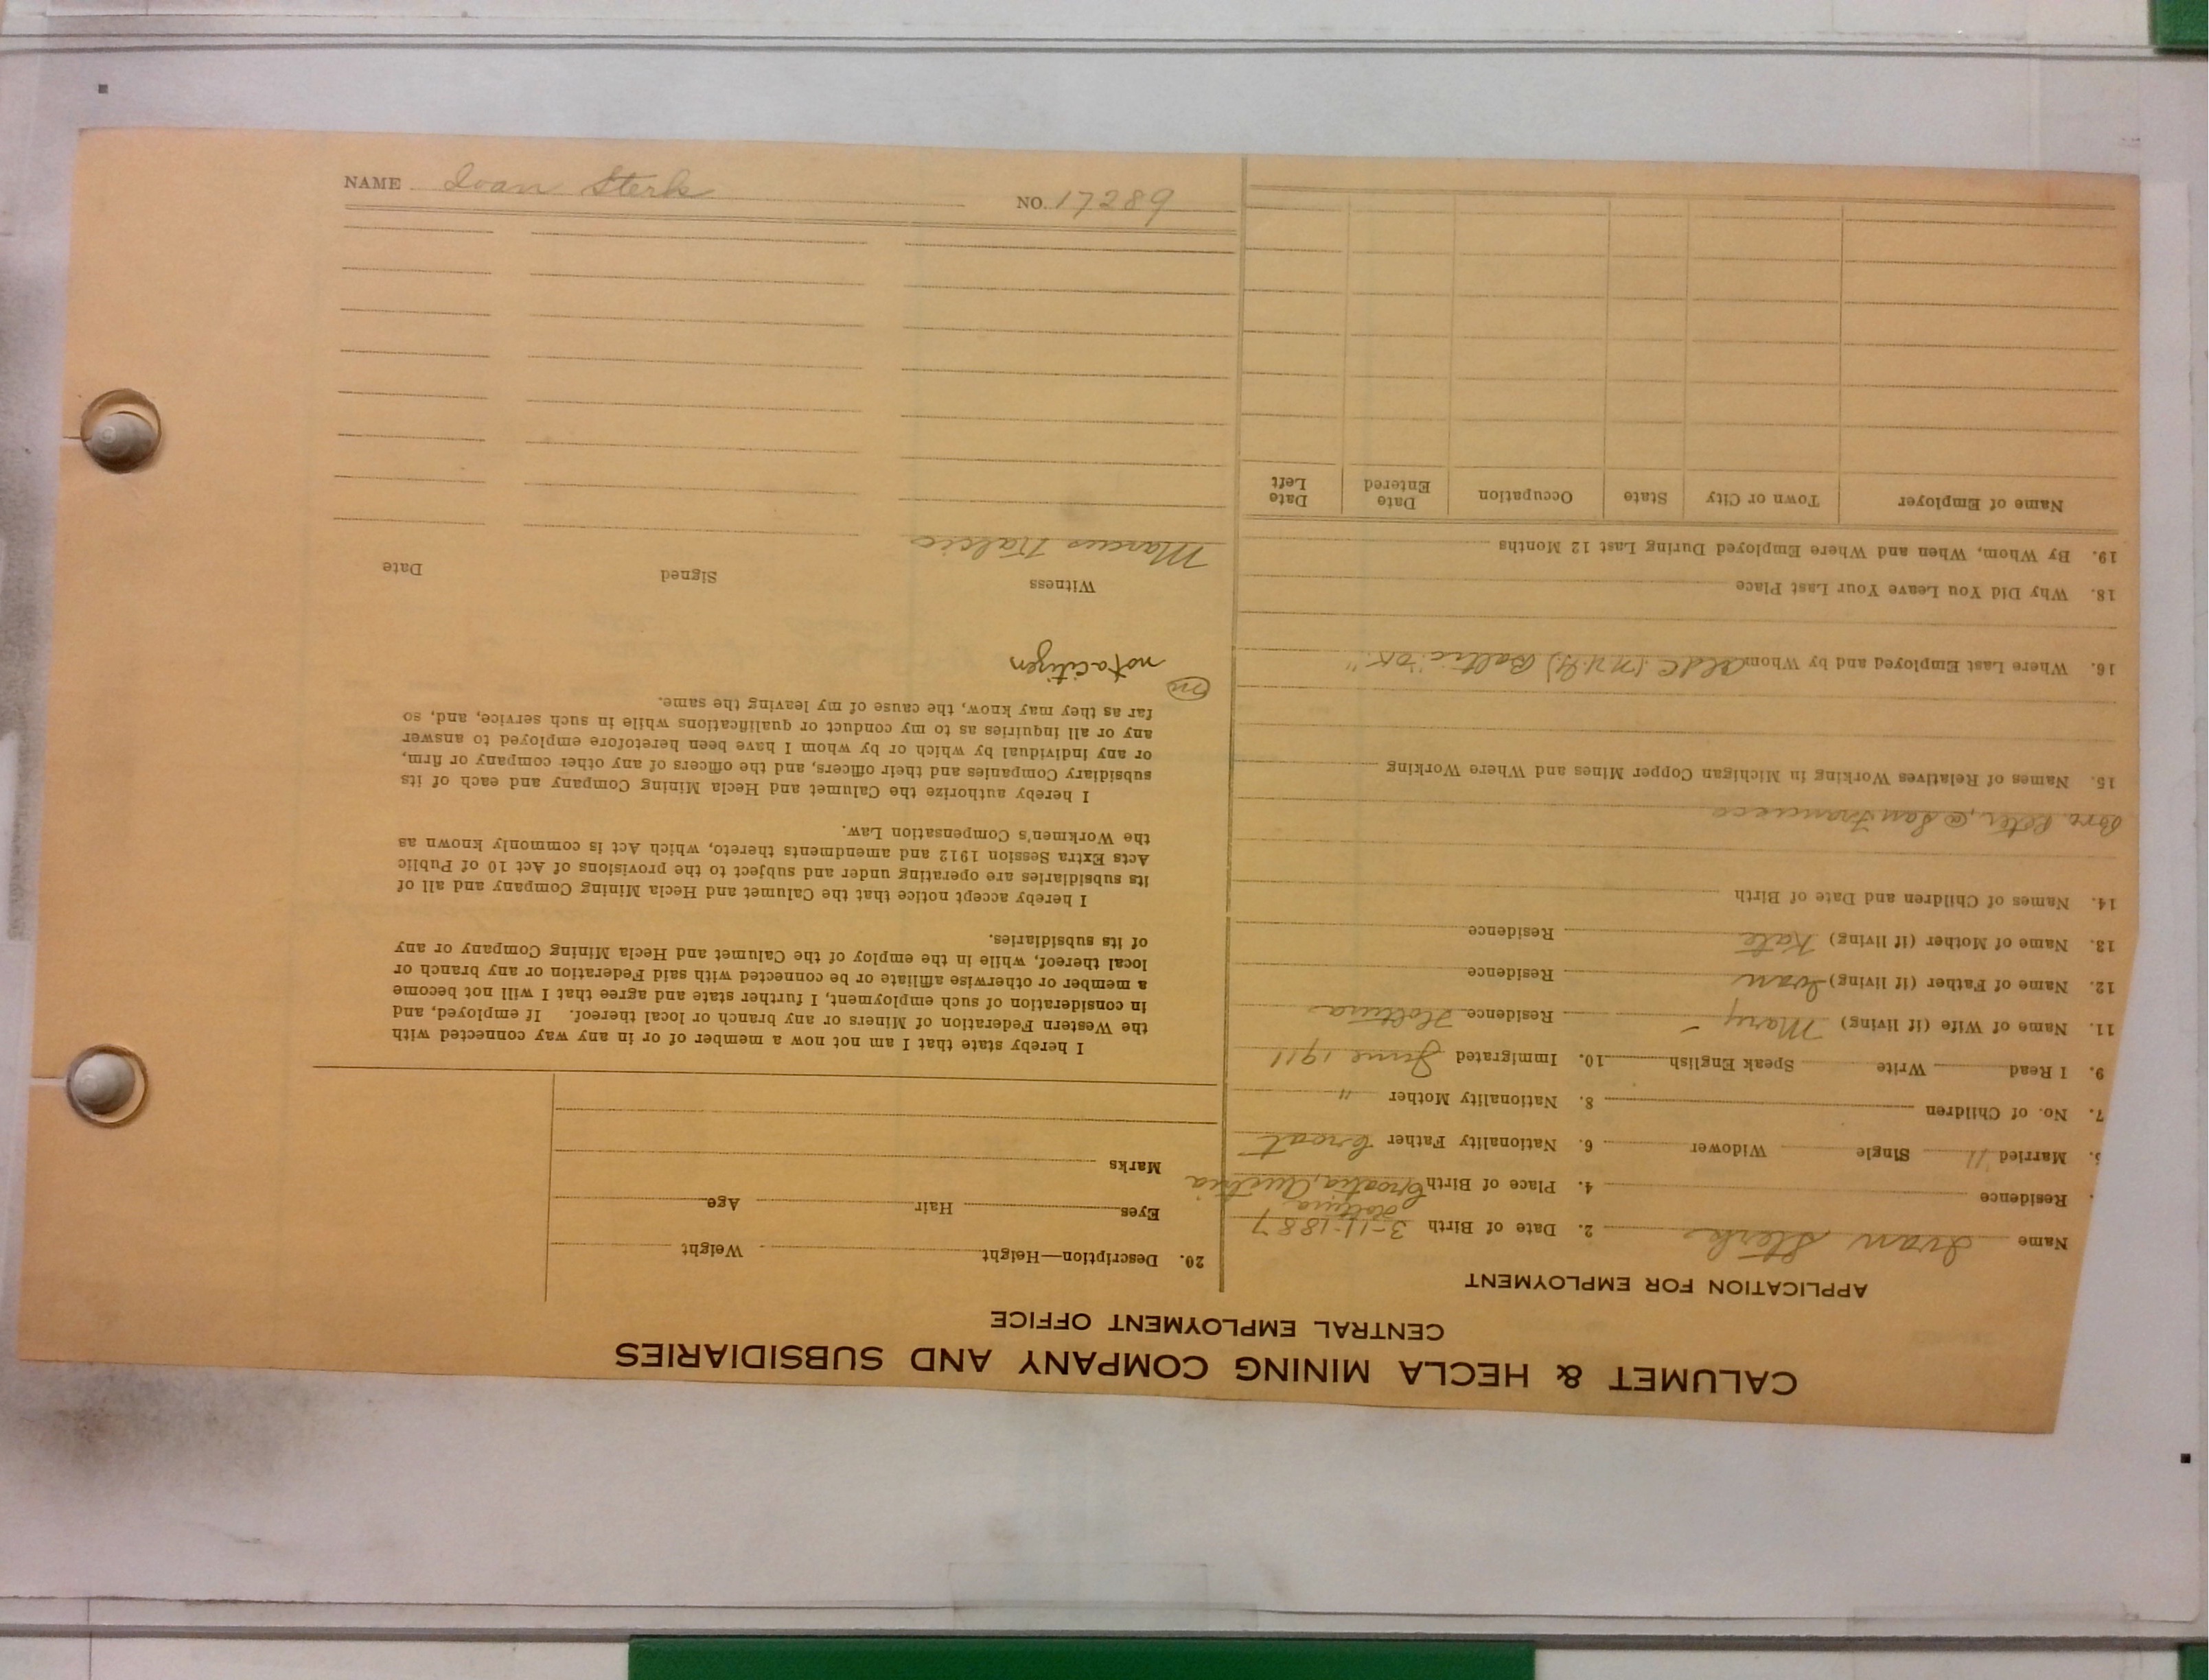 CALUMET & HECLA MINING COMPANY AND SUBSIDIARIES
CENTRAL EMPLOYMENT OFFICE
APPLICATION FOR EMPLOYMENT
Name Ivan Sterk 2. Date of Birth 3-11-1887
Residence 4. Place of Birth Croatia, Austria
Married 11 Single Widower 6. Nationality Father Croat
7. No. of Children 8. Nationality Mother "
9. I Read Write Speak English 10. Immigrated June 1911
11. Name of Wife (if living) Mary Residence
12. Name of Father (if living) Ivan Residence
13. Name of Mother (if living) Kate Residence
14. Names of Children and Date of Birth
Bro. Peter, @ San Francisco
15. Names of Relatives Working in Michigan Copper Mines and Where Working
16. Where Last Employed and by Whom Baltic "OK"
18. Why Did You Leave Your Last Place
19. By Whom, When and Where Employed During Last 12 Months
Name of Employer Town or City State Occupation Date Entered Date Left
20. Description—Height Weight
Eyes Hair Age
Marks
I hereby state that I am not now a member of or in any way connected with
the Western Federation of Miners or any branch or local thereof. If employed, and
in consideration of such employment, I further state and agree that I will not become
a member or otherwise affiliate or be connected with said Federation or any branch or
local thereof, while in the employ of the Calumet and Hecla Mining Company or any
of its subsidiaries.
I hereby accept notice that the Calumet and Hecla Mining Company and all of
its subsidiaries are operating under and subject to the provisions of Act 10 of Public
Acts Extra Session 1912 and amendments thereto, which Act is commonly known as
the Workmen's Compensation Law.
I hereby authorize the Calumet and Hecla Mining Company and each of its
subsidiary Companies and their officers, and the officers of any other company or firm,
or any individual by which or by whom I have been heretofore employed to answer
any or all inquiries as to my conduct or qualifications while in such service, and, so
far as they may know, the cause of my leaving the same.
not a citizen
Witness Signed Date
Marcus
NAME Ivan Sterk NO. 17289